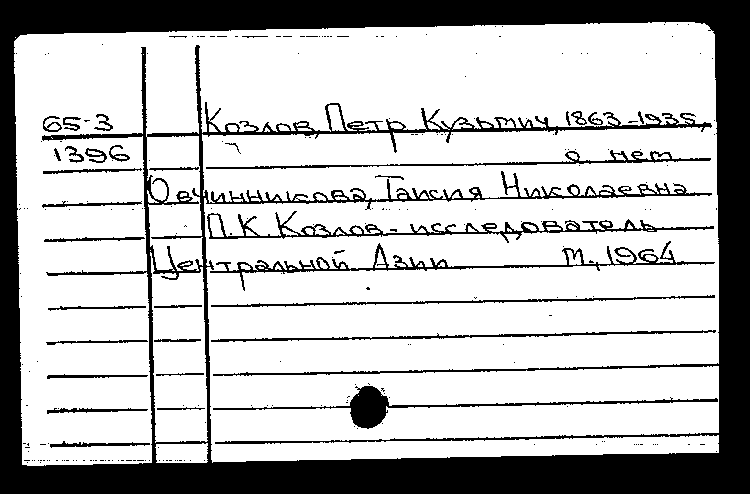 65-3 Козлов, Петр Кузьмич, 1863-1935,
1396 о нем
Овчинникова, Таисия Николаевна
П.К. Козлов - исследователь
Центральной Азии М., 1964